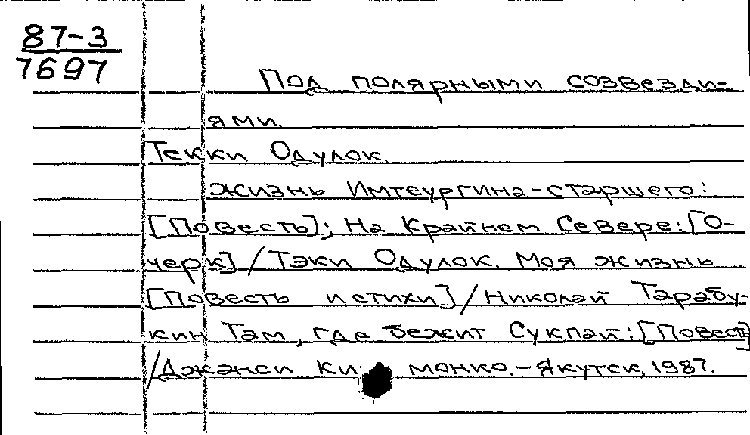 87-3
7697
Под полярными созвезди-
ями.
Текки Одулок.
Жизнь Имтеургина-старшего:
[Повесть]; На Крайнем Севере: [О-
черк] / Тэки Одулок. Моя жизнь
[Повесть и стихи] / Николай Тарабу-
кин Там, где бежит Сукпай: [Повест]
/ Джанси Ки монко. - Якутск, 1987.